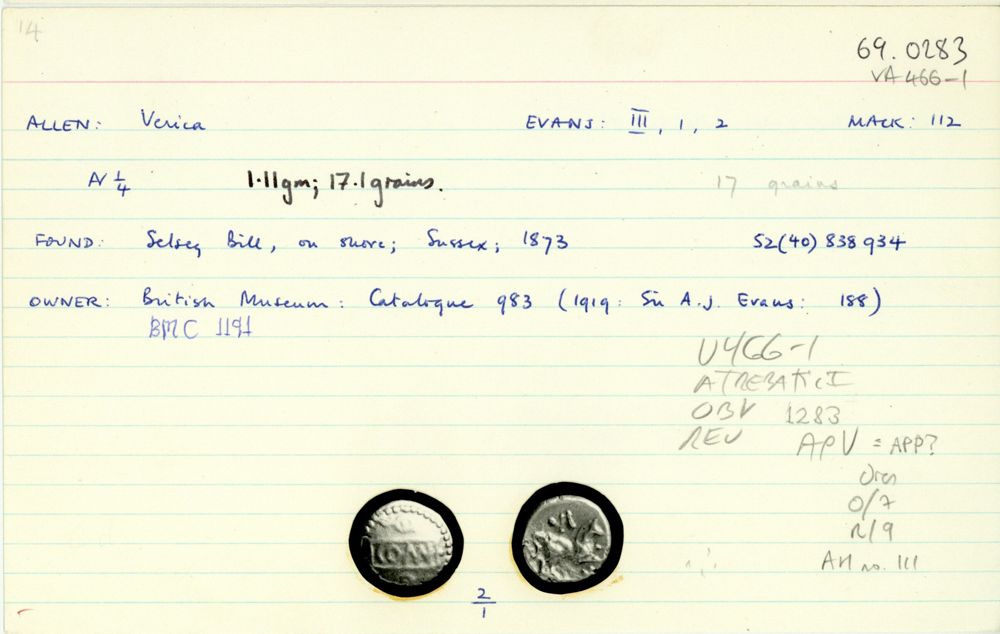 14
69.0283
VA 466-1
ALLEN: Verica EVANS: III, 1, 2 MACK: 112
AV 1/4 1.11gm; 17.1 grains. 17 grains
FOUND: Selsey Bill, on shore; Sussex; 1873 SZ(40) 838 934
OWNER: British Museum: Catalogue 983 (1919: Sir A.J. Evans: 188)
BMC 1191
V466-1
ATREBATIC I
OBV 1283
REV APV = APP?
Dies
O/7
R/9
AH no. 111
2/1